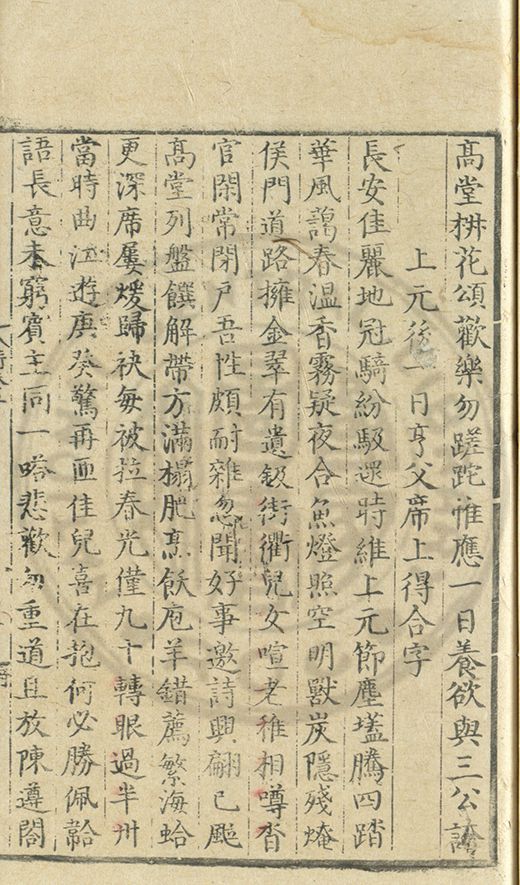 高堂椕花頌歡樂勿蹉跎惟應一日養欲與三公誇
上元後一日亨父席上得合字
長安佳麗地冠騎紛馺遝時維上元節塵壒騰四踏
華風藹春温香霧疑夜合魚燈照空明獸炭隱殘㷇
侯門道路擁金翠有遺鈒街衢兒女喧老稚相噂沓
官閑常閉户吾性頗耐雜忽聞好事邀詩興翩已颭
髙堂列盤饌解帶方滿榻肥烹飫庖羊錯薦繁海蛤
更深席屢煖歸袂每被拉春光僅九十轉眼過半卅
當時曲江遊庚癸驚再匝佳兒喜在抱何必勝佩韐
語長意未窮賓主同一嗒悲歡勿重道且放陳遵閤